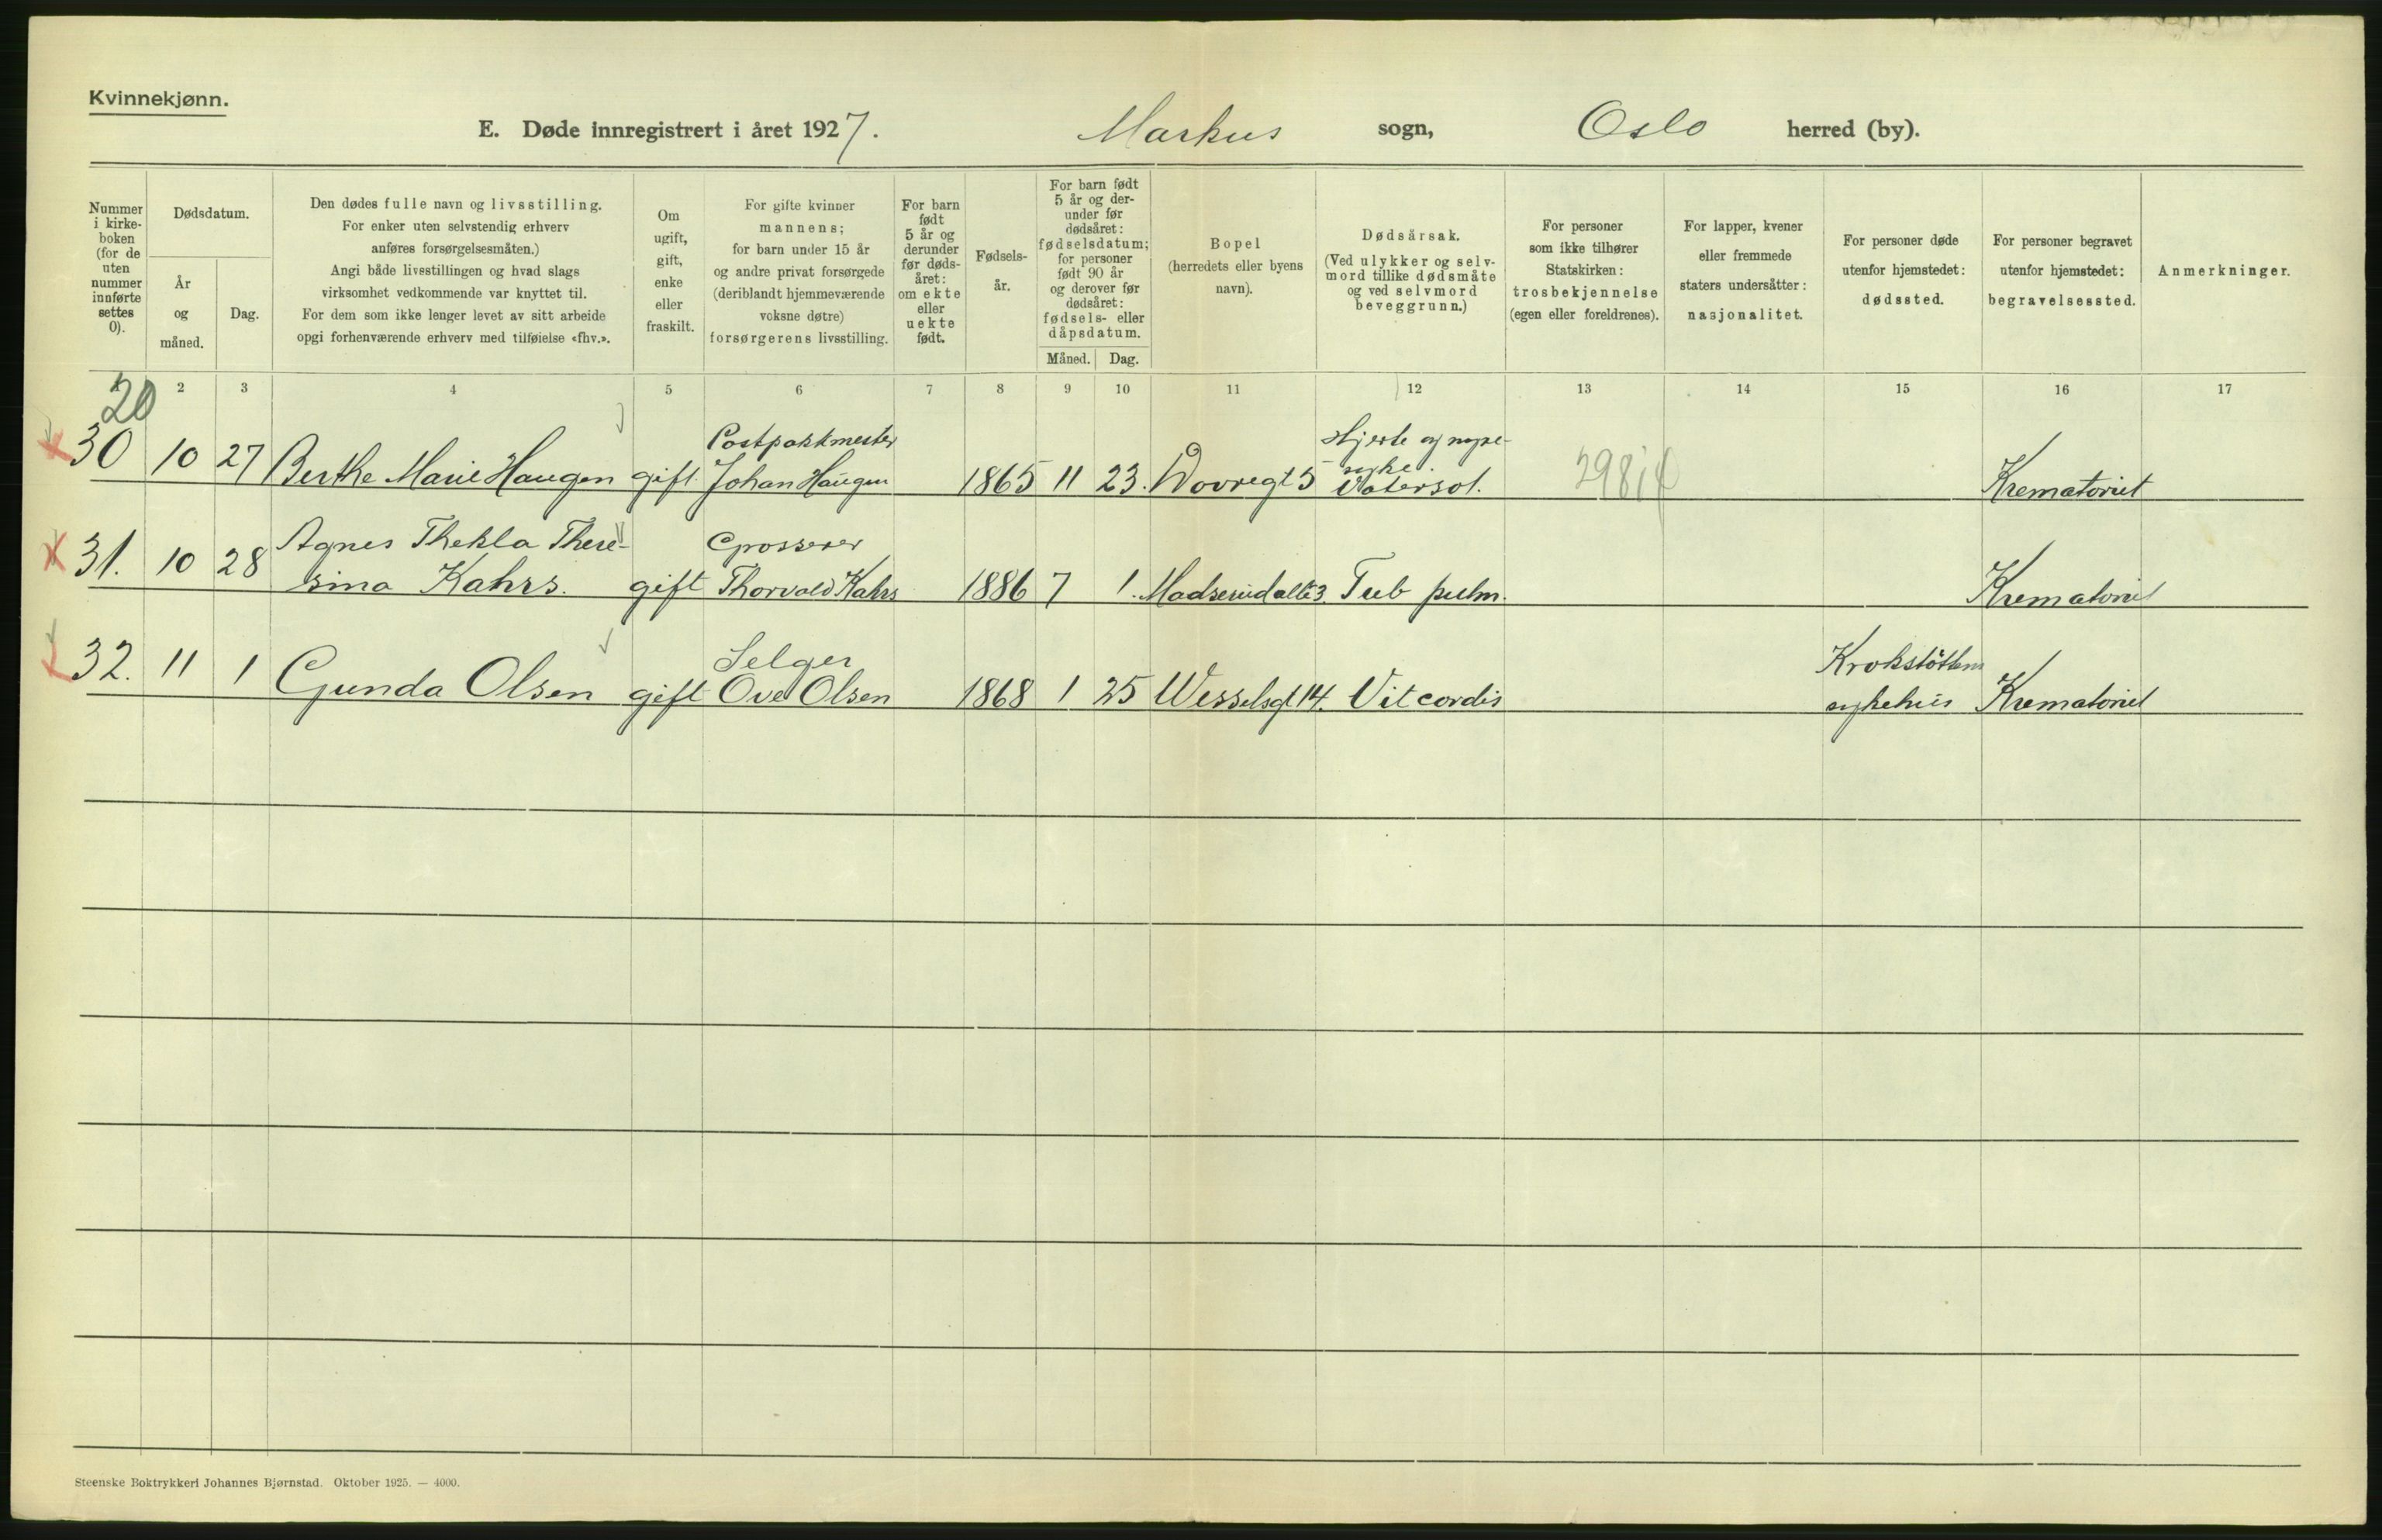 Kvinnekjønn.
E. Døde innregistrert i året 1927. Markus sogn, Oslo herred (by).
Nummer i kirke- boken (for de uten nummer innførte settes 0).
Dødsdatum.
År og måned.
Dag.
Den dødes fulle navn og livsstilling.
For enker uten selvstendig erhverv
anføres forsørgelsesmåten.)
Angi både livsstillingen og hvad slags
virksomhet vedkommende var knyttet til.
For dem som ikke lenger levet av sitt arbeide
opgi forhenværende erhverv med tilføielse «fhv.».
Om ugift, gift, enke eller fraskilt.
For gifte kvinner
mannens;
for barn under 15 år
og andre privat forsørgede
(deriblandt hjemmeværende
voksne døtre)
forsørgerens livsstilling.
For barn født 5 år og derunder før døds- året: om ekte eller uekte født.
Fødsels- år.
For barn født 5 år og der- under før dødsåret: fødselsdatum; for personer født 90 år og derover før dødsåret: fødsels- eller dåpsdatum.
Måned. Dag.
Bopel
(herredets eller byens
navn).
Dødsårsak.
(Ved ulykker og selv-
mord tillike dødsmåte
og ved selvmord
beveggrunn.)
For personer
som ikke tilhører
Statskirken:
trosbekjennelse
(egen eller foreldrenes).
For lapper, kvener
eller fremmede
staters undersåtter:
nasjonalitet.
For personer døde
utenfor hjemstedet:
dødssted.
For personer begravet
utenfor hjemstedet:
begravelsessted.
Anmerkninger.
20 2 3 4 5 6 7 8 9 10 11 12 13 14 15 16 17
Postpakkmester Hjerte og nyre-
30 10 27 Berthe Marie Haugen gift Johan Haugen 1865 11 23. Dovregt 5 syke. Krematoriet
Agnes Thekla There- Grosserer
31. 10 28 sina Kahrs. gift Thorvald Kahrs 1886 7 1. Madserudallé 3. Tub pulm. Krematoriet
Selger
32. 11 1 Gunda Olsen gift Ove Olsen 1868 1 25 Wesselsgt 14. Vit cordis sykehus Krematoriet
Steenske Boktrykkeri Johannes Bjørnstad. Oktober 1925. — 4000.